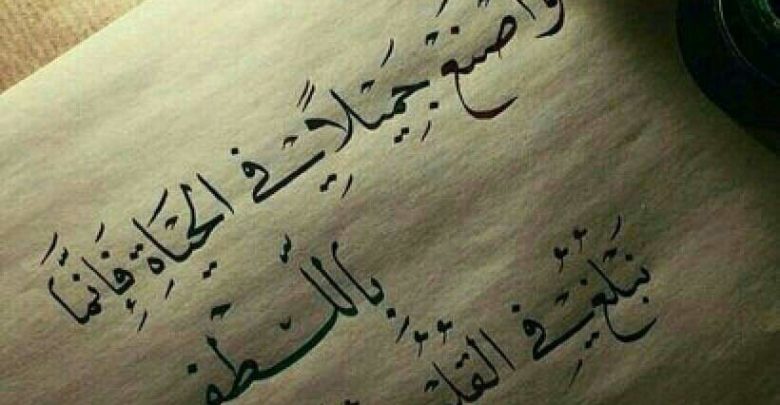 واصنع جَمِيلاً في الحَيَاةِ فَإِنمَّا
بِاللُّطْفِ
نَبْلُغُ في